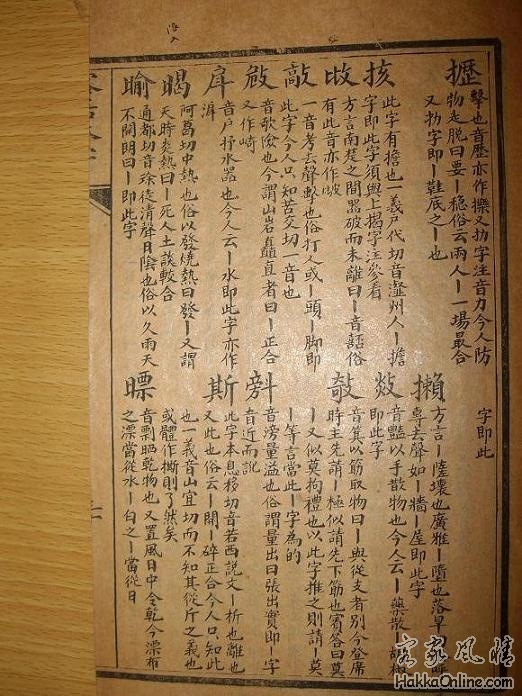 攊
擊也音歷亦作擽又扐字注音力今人防
物走脱曰要丨穩俗云兩人丨一場最合
又扐字即丨鞋底之丨也
㧡
此字有擔也一義戶代切音瀣州人丨擔
字即此字須與上揭字注參看
方言南楚之間器破而未離曰丨音嚭俗
有此音亦作
敲
一音考去聲擊也俗打人或丨頭丨脚即
此字今人只知苦交切一音也
音欹也今謂山岩矗直者曰丨正合
又作崎
戽
音戶抒水器也今人云丨水即此字亦作
滹
暍
阿葛切中熱也俗以發燒熱曰發丨又謂
天時炎熱曰丨死人土談較合
通都切音除徒清聲日陰也俗以久雨天
不開朗曰丨即此字
字即此
攋
方言丨隳壞也廣雅丨墮也落旱切
專去聲如丨牆丨屋即此字
敥
音豔以手散物也今人云丨藥散胡椒
即此字
攲
音箕以筯取物曰丨與從支者别今登席
時主先請丨極似請先下筯也賓答曰莫
丨又似莫拘禮也以此字推之則請丨莫
丨等言當此丨字為的
音滂量溢也俗謂量出曰張出實即丨字
音近而訛
斯
此字本息移切音若西說文丨析也離也
又此也俗云丨開丨碎正合今人只知此
也一義音山宜切而不知其從斤之義也
或體作撕則了然矣
音剽晒乾物也又置風日中令乾今漂布
之漂當從水丨白之丨當從日
客家風情
HakkaOnline.com